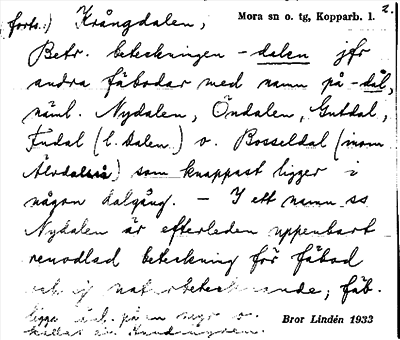 forts.) Krångdalen, Mora sn o. tg, Kopparb. l. 2.
Betr. beteckningen -dalen jfr
andra fäbodar med namn på -dal,
näml. Nydalen, Öndalen, Gutdal,
Indal (l. Dalen.) o. Bosseldal (inom
Älvdalen) som knappast ligger i
någon dalgång. – I ett namn ss
Nydalen är efterleden uppenbart
renodlad beteckning för fäbod
och ej naturbetecknande; fäb.
ligga
Bror Lindén 1933